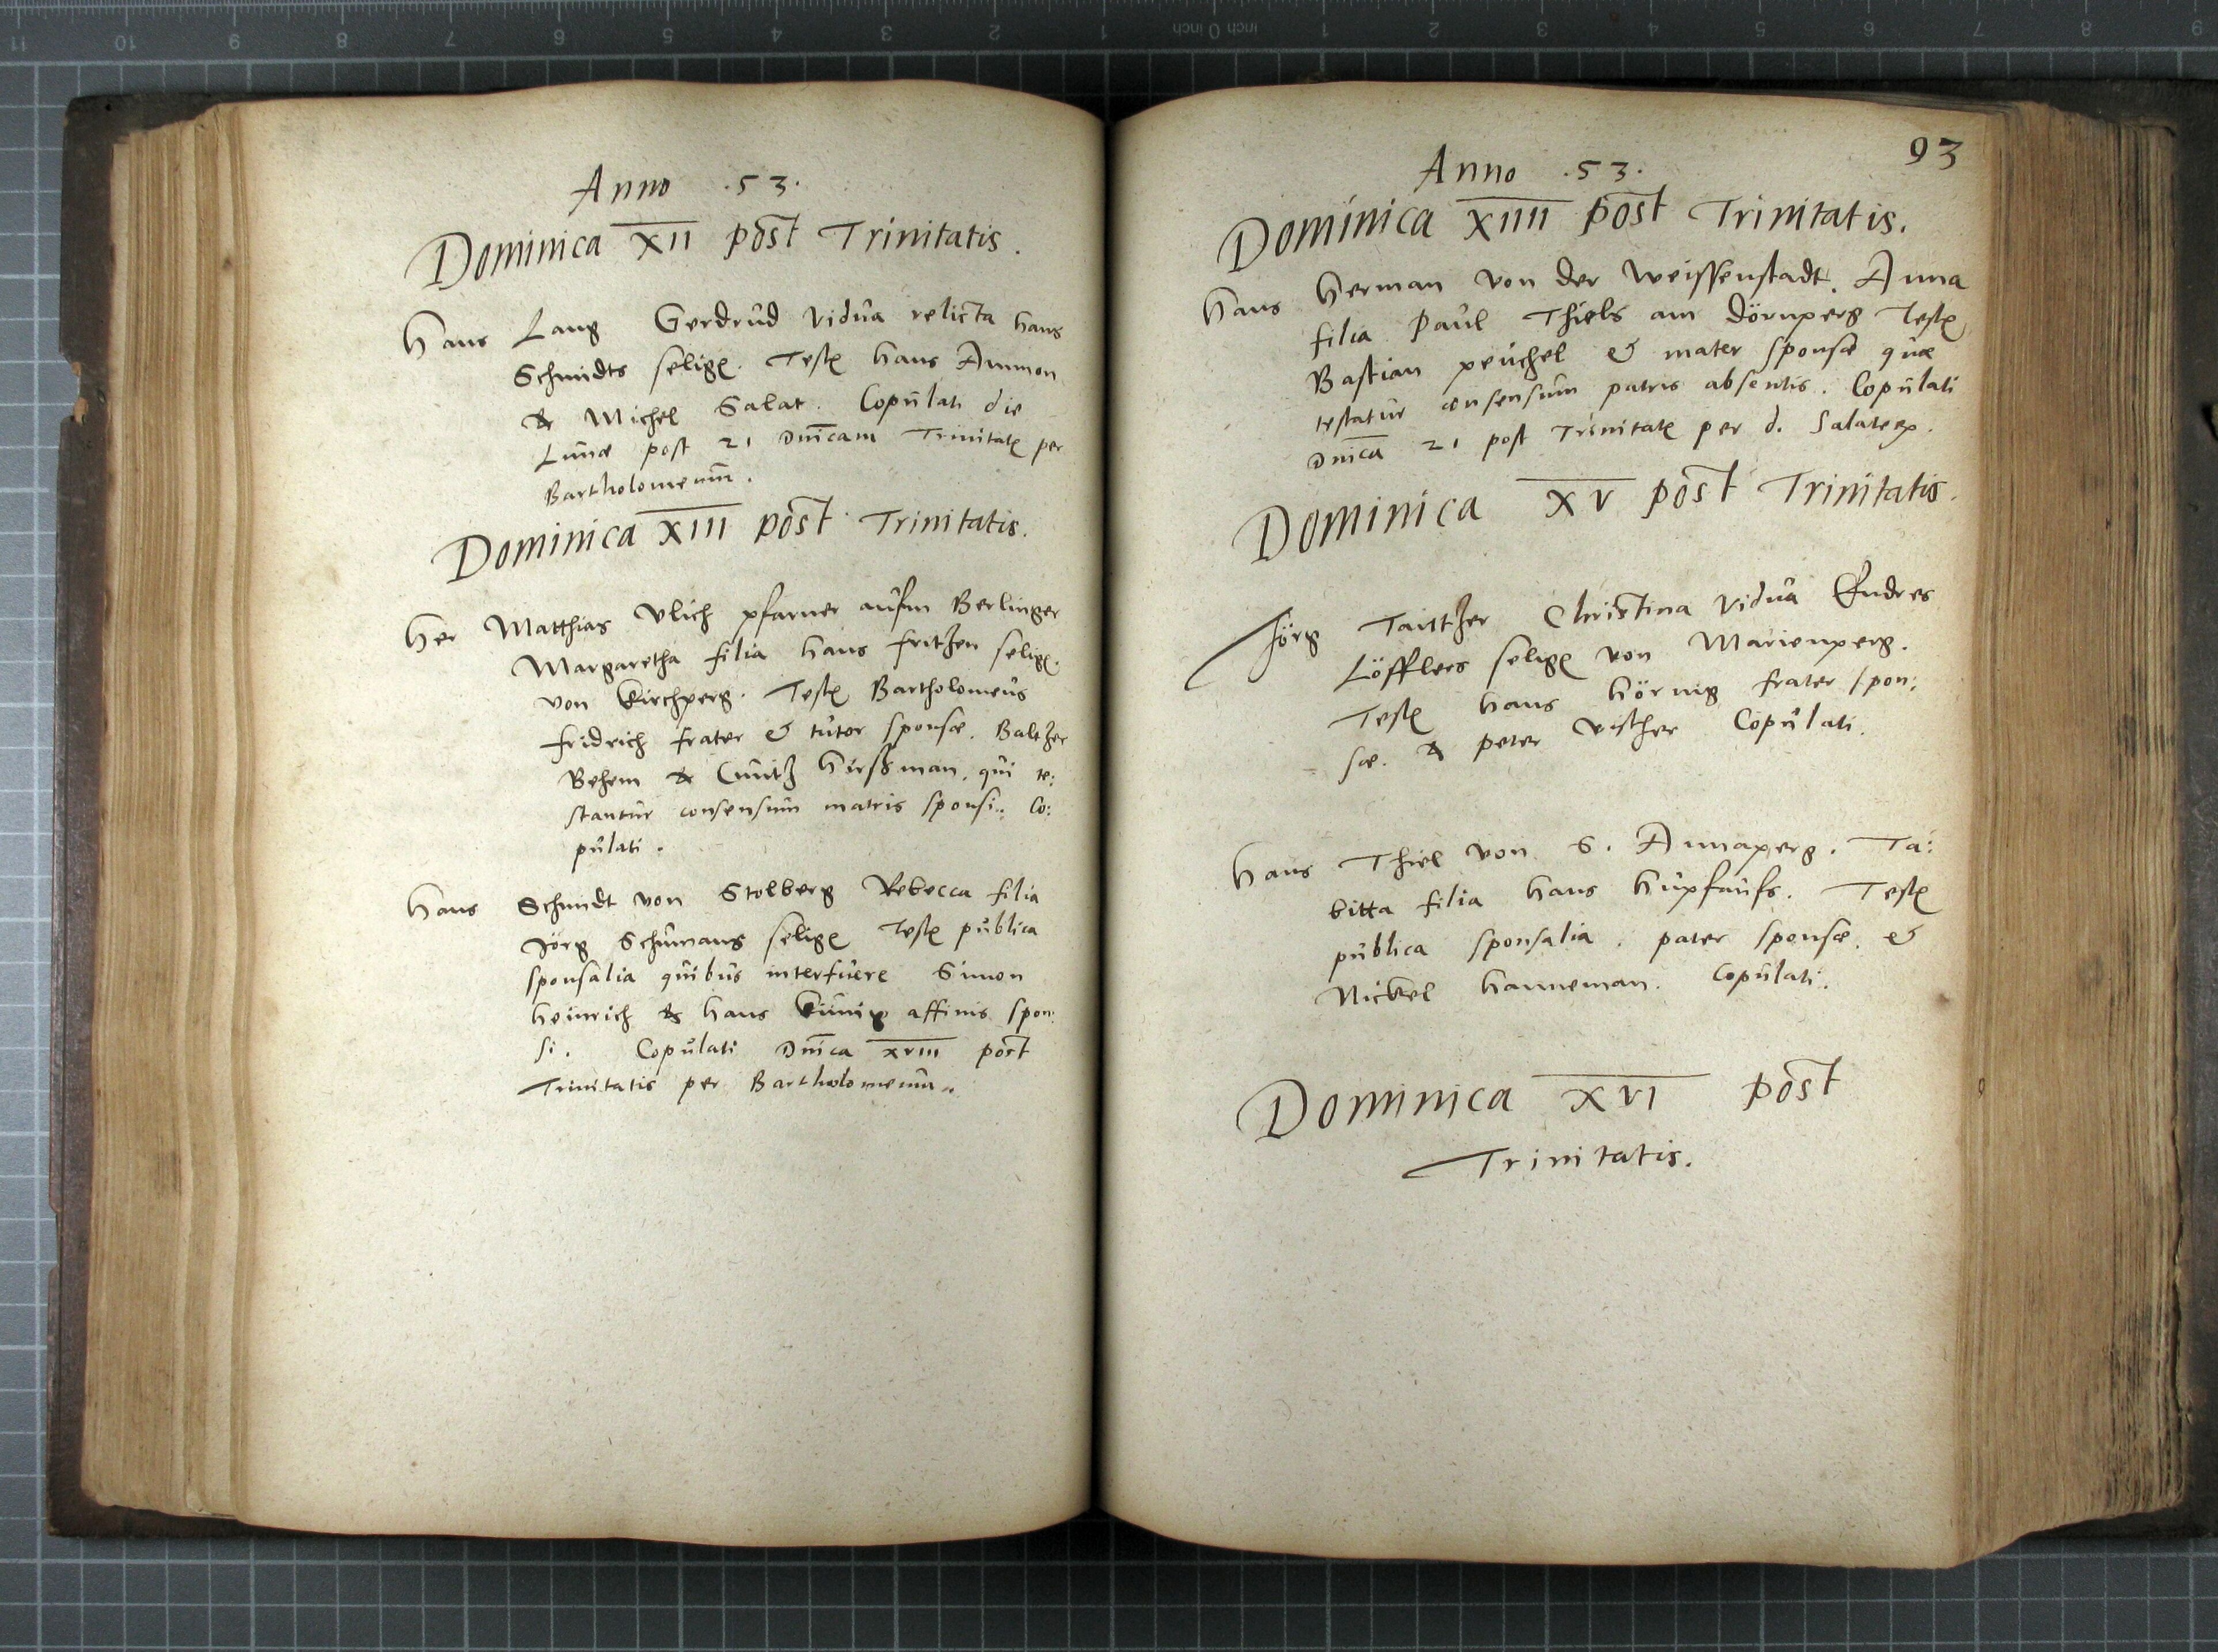 Anno .53.
Dominica XII post Trinitatis.
Hans Lang Gerdrud vidua relicta Hans
Schmidts selige. Teste Hans Ammon
& Michel Salat. Copulati die
Lunæ post 21 Dnicam Trinitate per
Bartholomeum.
Dominica XIII post Trinitatis.
Her Matthias Vlich pfarner aufm Berlinger
Margaretha filia Hans fritzen selige.
von Kirchperg. Teste Bartholomeus
fridrich frater & tutor sponsæ. Baltzer
Behem & Cuntz Hirssman. qui te:
stantur consensum matris sponsi. Co:
pulati.
Hans Schmidt von Stolberg Rebecca filia
Jörg Schumans selige Teste publica
sponsalia quibus interfuere Simon
Heinrich & Hans Künig affinis spon:
si. Copulati Dnica XVIII post
Trinitatis per Bartholomeum.
93
Anno .53.
Dominica XIIII post Trinitatis.
Hans Herman von der Weissenstadt. Anna
filia Paul Thiels am dörnperg Teste
Bastian peuchel & mater sponsæ quæ
testatur consensum patris absentis. Copulati
Dnica 21 post Trinitate per d.
Dominica XV post Trinitatis.
Jörg Taittzer Christina vidua Endres
Löfflers selige von Marienperg.
Teste Hans Hörnig frater spon:
sæ. & peter Vischer Copulati.
Hans Thiel von S. Annaperg. Ta:
bitta filia Hans Hupfaufs. Teste
publica sponsalia. pater sponsæ. &
Nickel Hanneman. Copulati.
Dominica XVI post
Trinitatis.
11 10 9 8 7 6 5 4 3 2 1 inch 0 inch 1 2 3 4 5 6 7 8 9